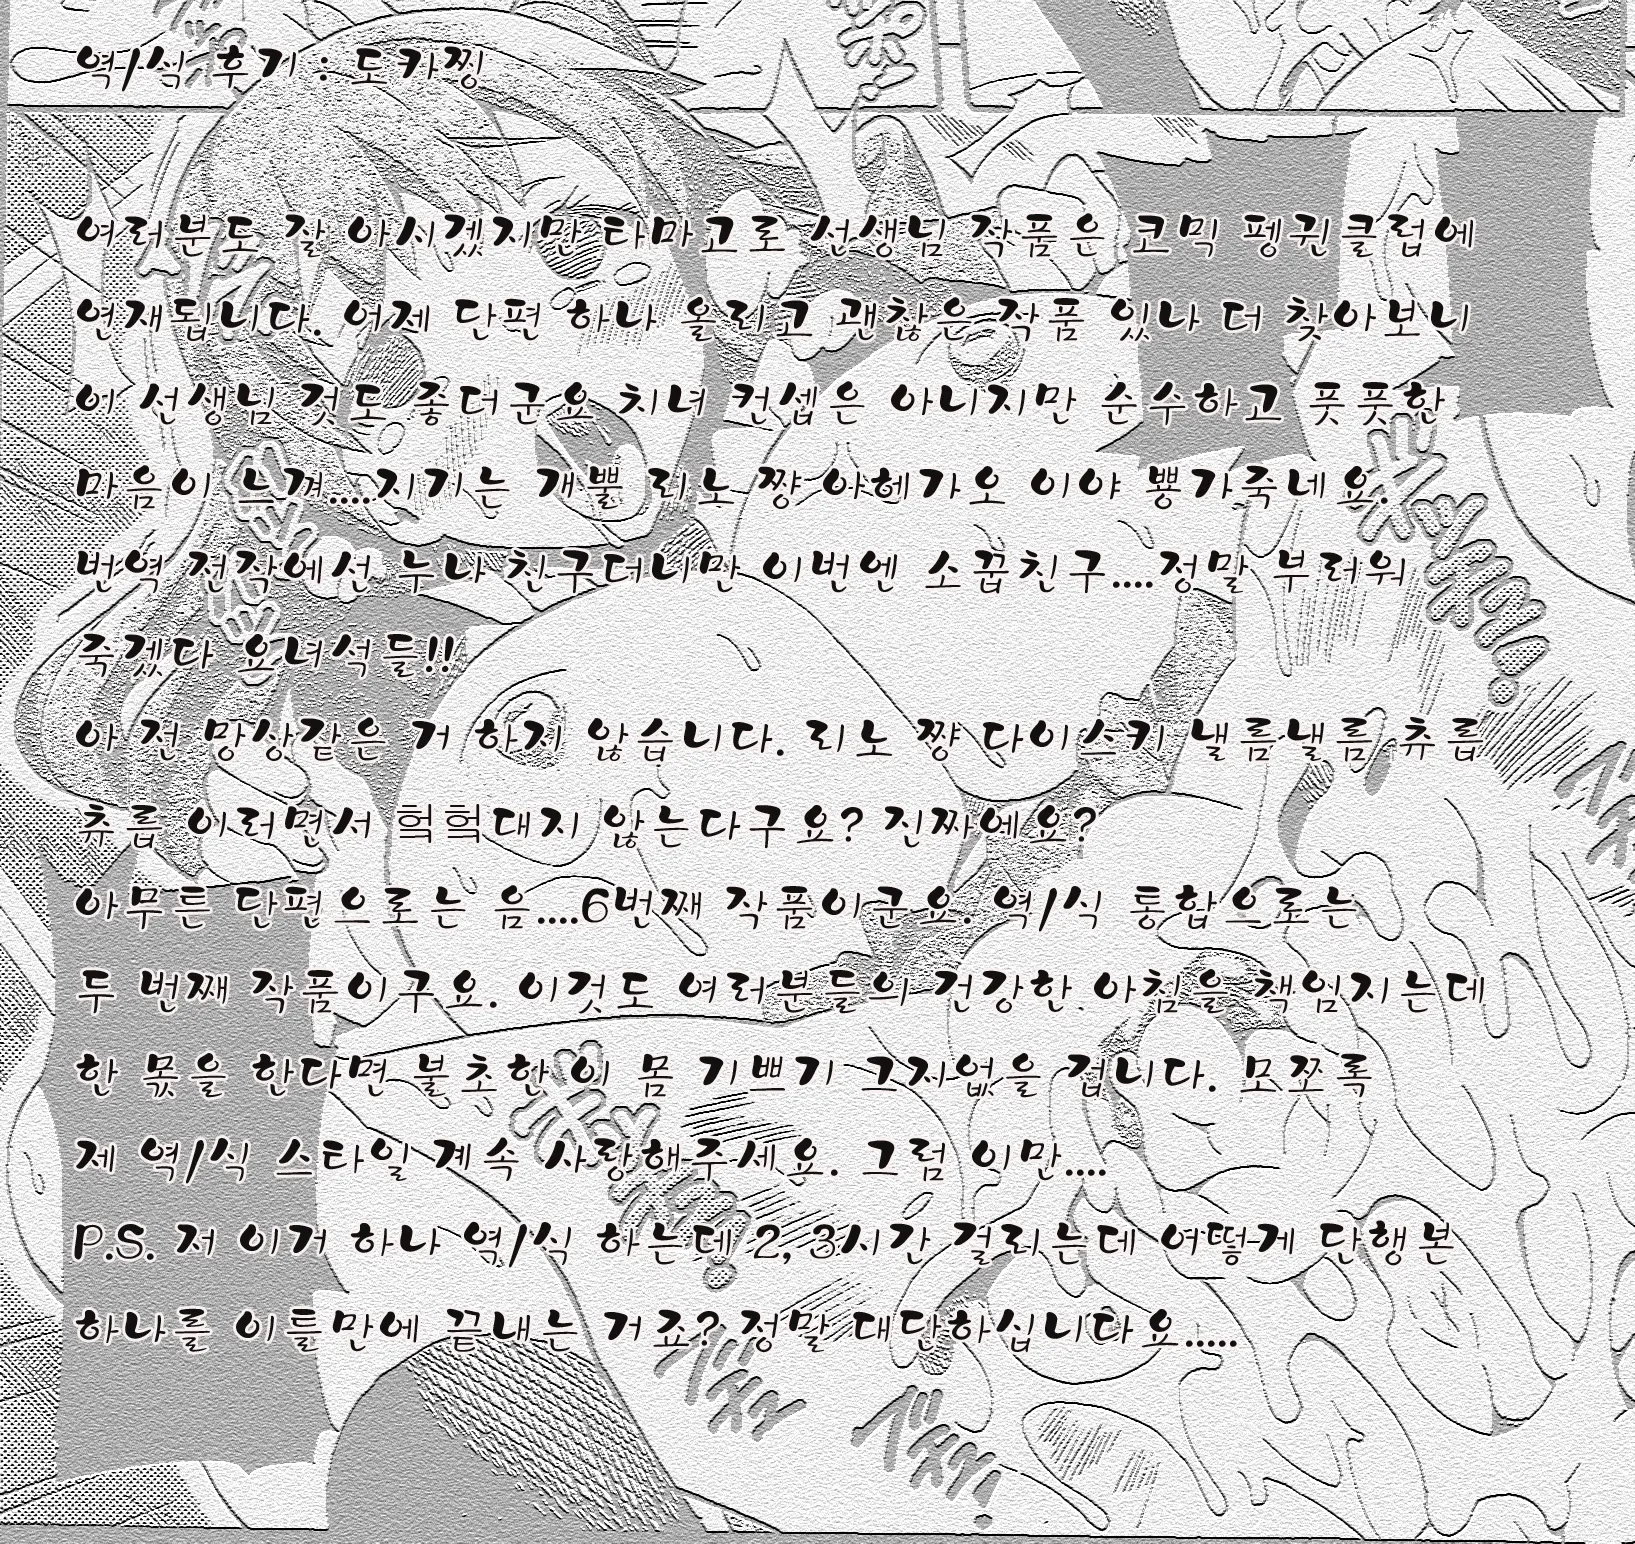 역/식 후기 : 도카찡
여러분도 잘 아시겠지만 타마고로 선생님 작품은 코믹 펭귄클럽에
연재됩니다. 어제 단편 하나 올리고 괜찮은 작품 있나 더 찾아보니
이 선생님 것도 좋더군요 치녀 컨셉은 아니지만 순수하고 풋풋한
마음이 느껴....지기는 개뿔 리노 쨩 아헤가오 이야 뿅가죽네요.
번역 전작에선 누나 친구더니만 이번엔 소꿉친구....정말 부러워
죽겠다 요녀석들!!
아 전 망상같은 거 하지 않습니다. 리노 쨩 다이스키 낼름낼름 츄릅
츄릅 이러면서 헠헠대지 않는다구요? 진짜에요?
아무튼 단편으로는 음....6번째 작품이군요. 역/식 통합으로는
두 번째 작품이구요. 이것도 여러분들의 건강한 아침을 책임지는데
한 몫을 한다면 불초한 이 몸 기쁘기 그지없을 겁니다. 모쪼록
제 역/식 스타일 계속 사랑해주세요. 그럼 이만....
P.S. 저 이거 하나 역/식 하는데 2, 3시간 걸리는데 어떻게 단행본
하나를 이틀만에 끝내는 거죠? 정말 대단하십니다요.....